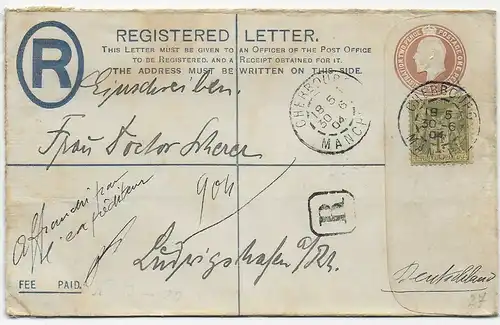 REGISTERED LETTER.
THIS LETTER MUST BE GIVEN TO AN OFFICER OF THE POST OFFICE
TO BE REGISTERED, AND A RECEIPT OBTAINED FOR IT.
THE ADDRESS MUST BE WRITTEN ON THIS SIDE.
R
Einschreiben.
CHERBOURG
18 5
30 6
04
MANCHE
CHERBOURG
18 5
30 6
04
Frau Doctor Scherer
904
affranchi par
l'expéditeur
R
Ludwigshafen a/Rh.
Deutschland
FEE PAID.
27